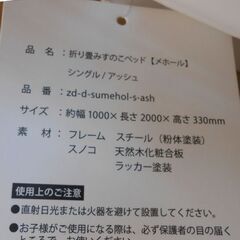 品名：折り畳みすのこベッド【メホール】
シングル/アッシュ
品番：zd-d-sumehol-s-ash
サイズ：約幅1000×長さ2000×高さ330mm
素材：フレーム　スチール（粉体塗装）
スノコ　天然木化粧合板
ラッカー塗装
使用上のご注意
●直射日光または火器を避けて設置してください。
●お子様がご使用になる際は、必ず保護者の目の届く
ところで、お使いください。